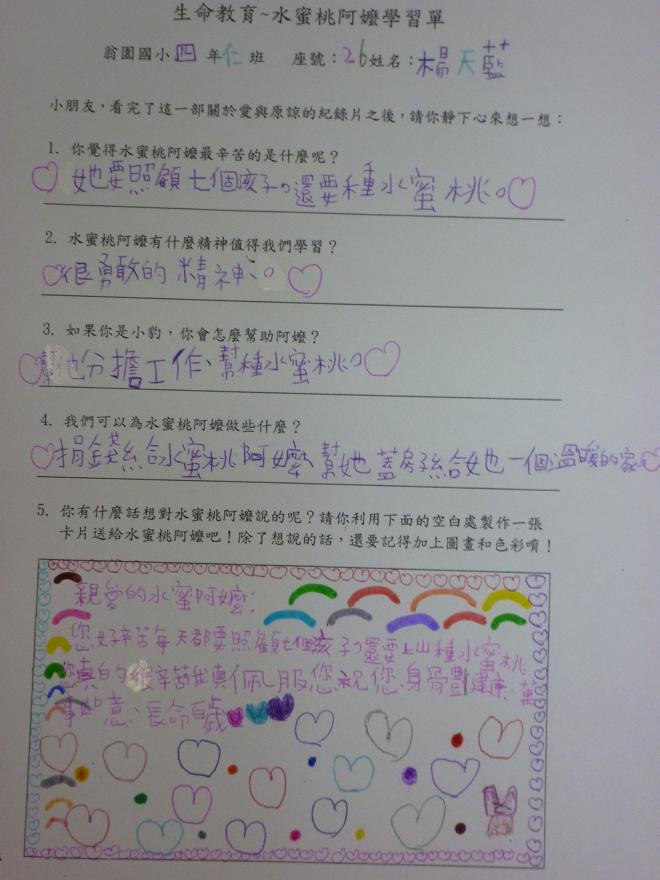 生命教育~水蜜桃阿嬤學習單
翁園國小四年仁班 座號：26姓名：楊天藍
小朋友，看完了這一部關於愛與原諒的紀錄片之後，請你靜下心來想一想：
1. 你覺得水蜜桃阿嬤最辛苦的是什麼呢？
她要照顧七個孩子，還要種水蜜桃。
2. 水蜜桃阿嬤有什麼精神值得我們學習？
很勇敢的精神。
3. 如果你是小豹，你會怎麼幫助阿嬤？
幫他分擔工作、幫種水蜜桃。
4. 我們可以為水蜜桃阿嬤做些什麼？
捐錢給水蜜桃阿嬤，幫她蓋房子給她一個溫暖的家。
5. 你有什麼話想對水蜜桃阿嬤說的呢？請你利用下面的空白處製作一張
卡片送給水蜜桃阿嬤吧！除了想說的話，還要記得加上圖畫和色彩唷！
親愛的水蜜阿嬤：
您好辛苦每天都要照顧七個孩子，還要上山種水蜜桃
您真的很辛苦我真佩服您祝您身骨豐健康、萬
事如意、長命百歲